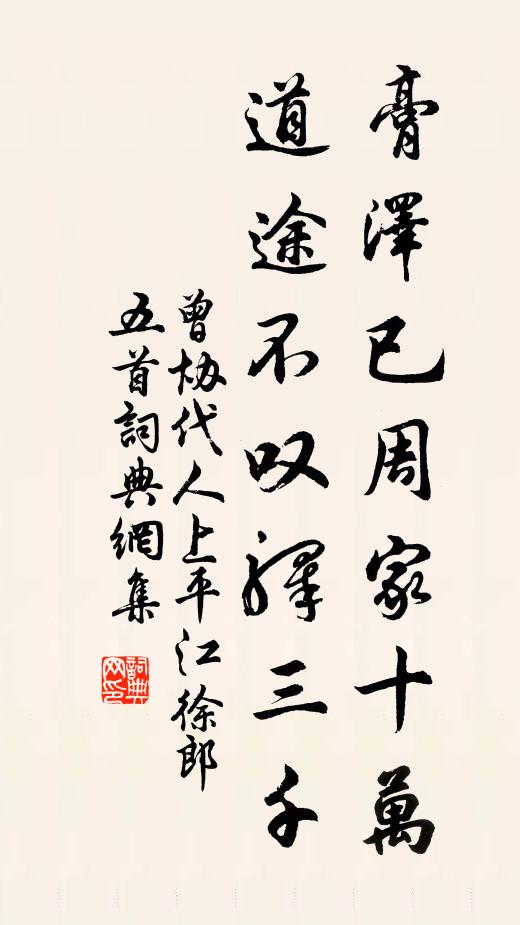 膏澤已周家十萬
道途不叹驛三千
曾協代人上平江徐郎
五首詞典網集
詞典网印